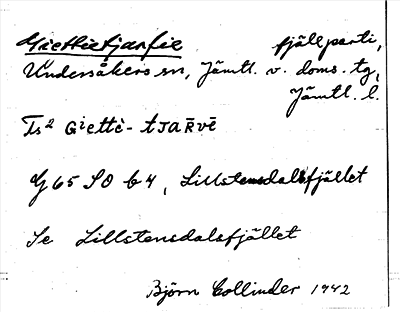 Giettietjarfie fjällparti,
Undersåkers sn, Jämtl. v. doms. tg,
Jämtl. l.
Ts² Giettè-tjaR̄vē
G 65 SO b 4, Lillstensdalsfjället
Se Lillstensdalsfjället
Björn Collinder 1942